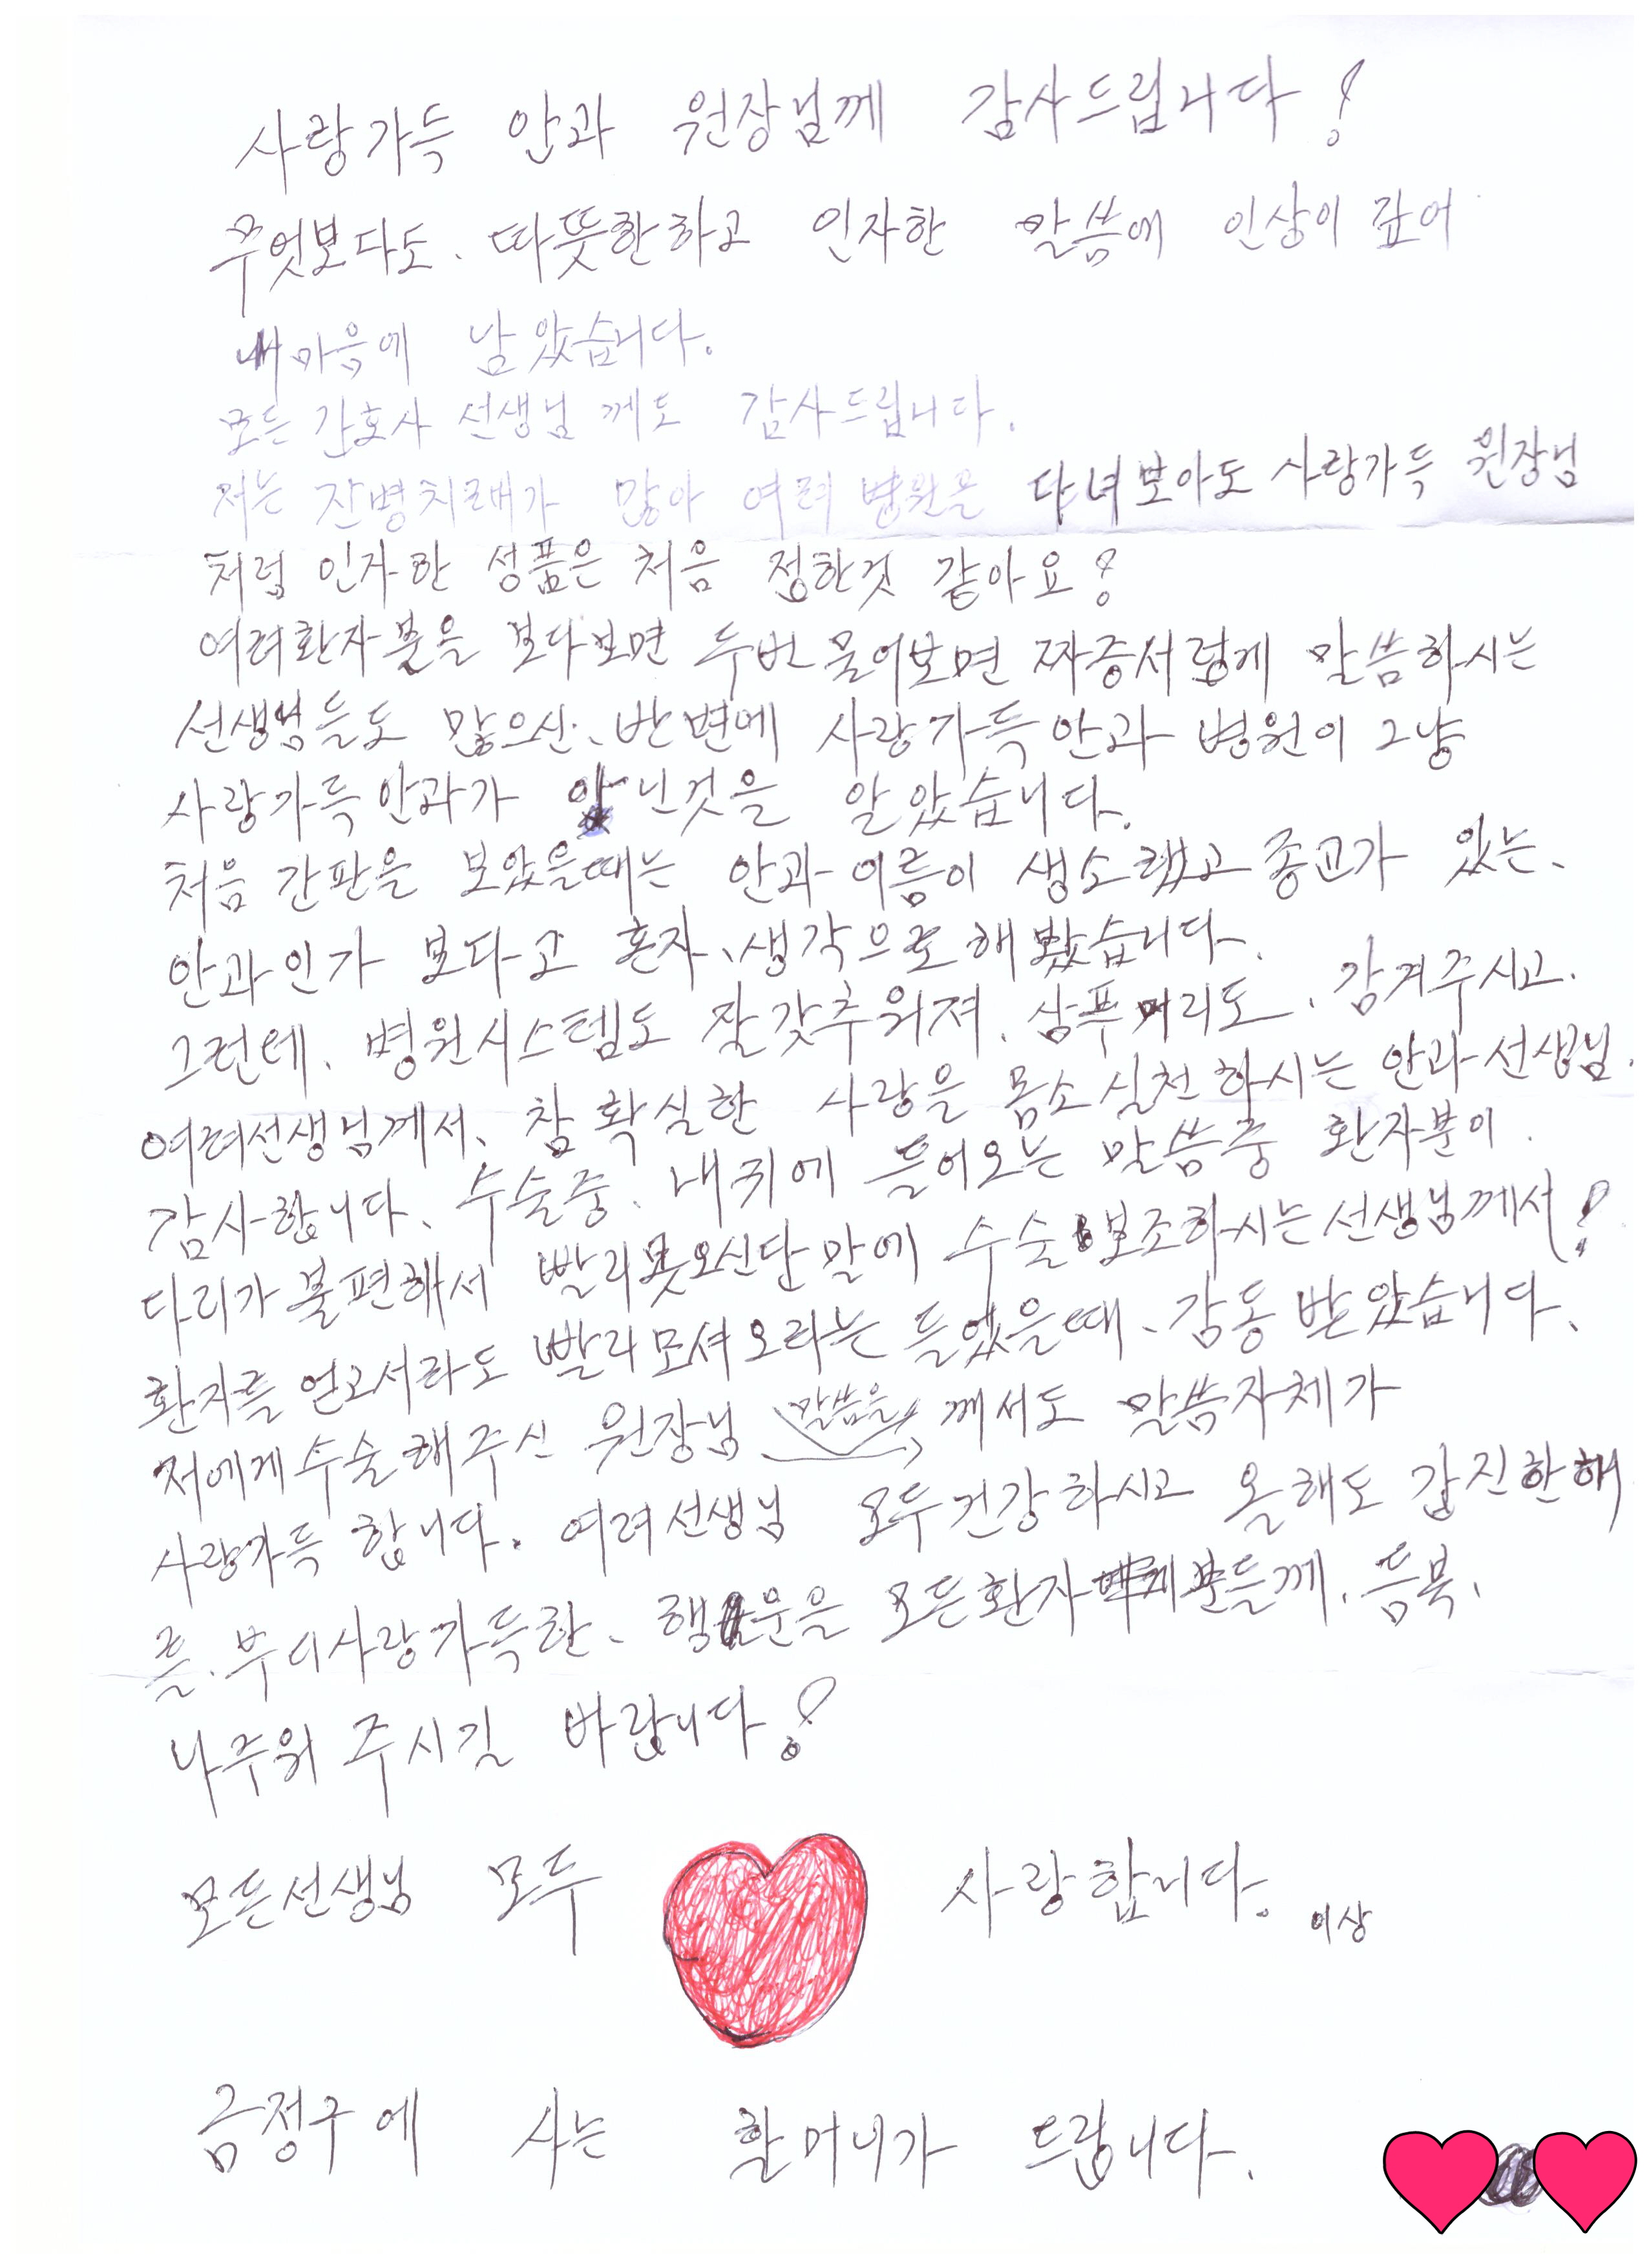 사랑가득 안과 원장님께 감사드립니다!
무엇보다도. 따뜻한하고 인자한 말씀에 인상이 깊어
내마음에 남았습니다.
모든 간호사 선생님 께도 감사드립니다.
저는 잔병치레가 많아 여려 병원을 다녀보아도 사랑가득 원장님
처럼 인자한 성품은 처음 접한것 같아요!
여려환자분을 보다보면 두번 물어보면 짜증서렇게 말씀하시는
선생님들도 많으신. 반면에 사랑가득안과 병원이 그냥
사랑가득안과가 아닌것을 알았습니다.
처음 간판을 보았을때는 안과 이름이 생소했고 종교가 있는.
안과인가 보다고 혼자. 생각으로 해봤습니다.
그런데. 병원시스템도 잘갖추워져. 삼푸머리도. 감겨주시고.
여려선생님께서. 참 확실한 사랑을 몸소실천하시는 안과선생님.
감사합니다. 수술중. 내귀에 들어오는 말씀중 환자분이.
다리가 불편해서 빨리못오신단말에 수술보조하시는선생님께서!
환자를 업고서라도 빨리모셔오라는 들었을때. 감동 받았습니다.
저에게수술해주신 원장님 말씀을 께서도 말씀자체가
사랑가득 합니다. 여려선생님 모두건강하시고 올해도 값진한해
를. 부디사랑가득한. 행운을 모든환자분들께. 듬북.
나주워 주시길 바랍니다!
모든선생님 모두 사랑합니다. 이상
금정구에 사는 할머니가 드립니다.